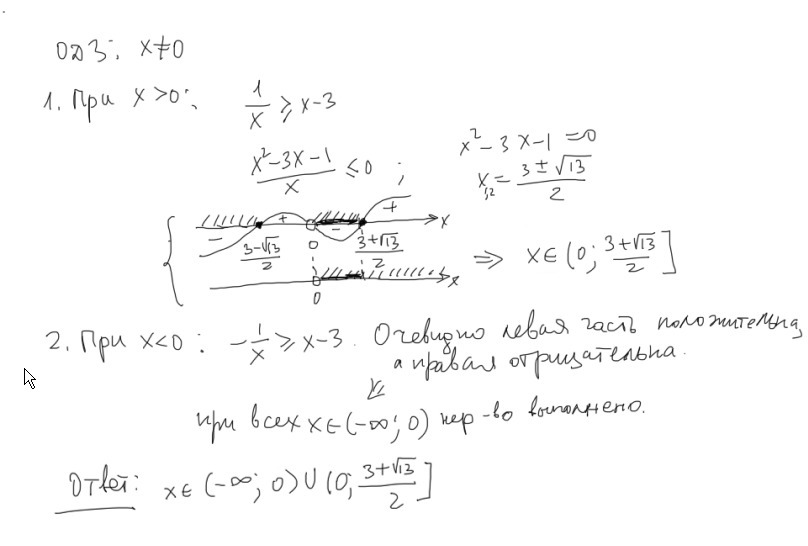 ОДЗ: x≠0
1. При x>0: 1/x ≥ x-3
(x²-3x-1)/x ≤ 0 ; x²-3x-1=0
x₁,₂ = (3±√13)/2
− + − + x
(3-√13)/2 0 (3+√13)/2 ⇒ x∈(0; (3+√13)/2]
0 x
2. При x<0: -1/x ≥ x-3. Очевидно левая часть положительна,
а правая отрицательна.
⇓
при всех x∈(-∞; 0) нер-во выполнено.
Ответ: x∈(-∞; 0)∪(0; (3+√13)/2]